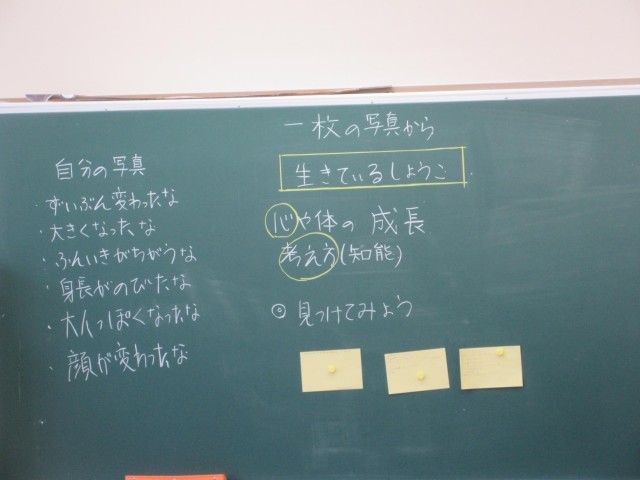 一枚の写真から
生きているしょうこ
心や体の成長
考え方(知能)
◎見つけてみよう
自分の写真
・ずいぶん変わったな
・大きくなったな
・ふんいきがちがうな
・身長がのびたな
・大人っぽくなったな
・顔が変わったな